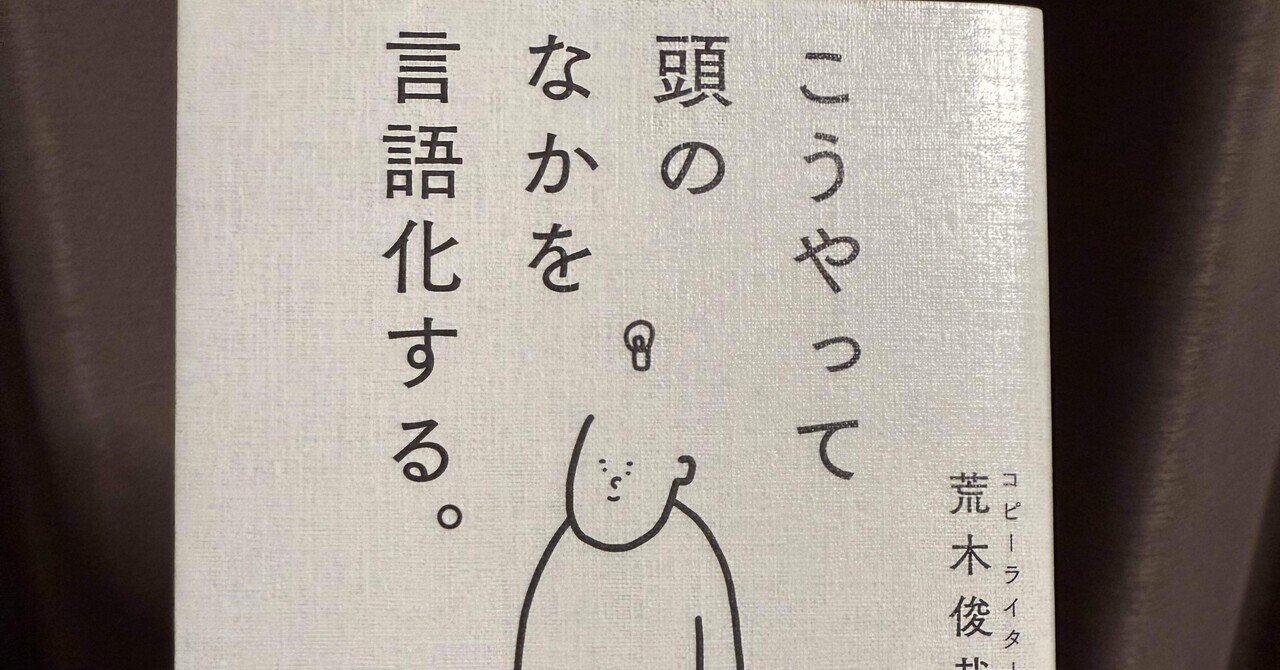 こうやって
頭の
なかを
言語化する。
コピーライター
荒木俊